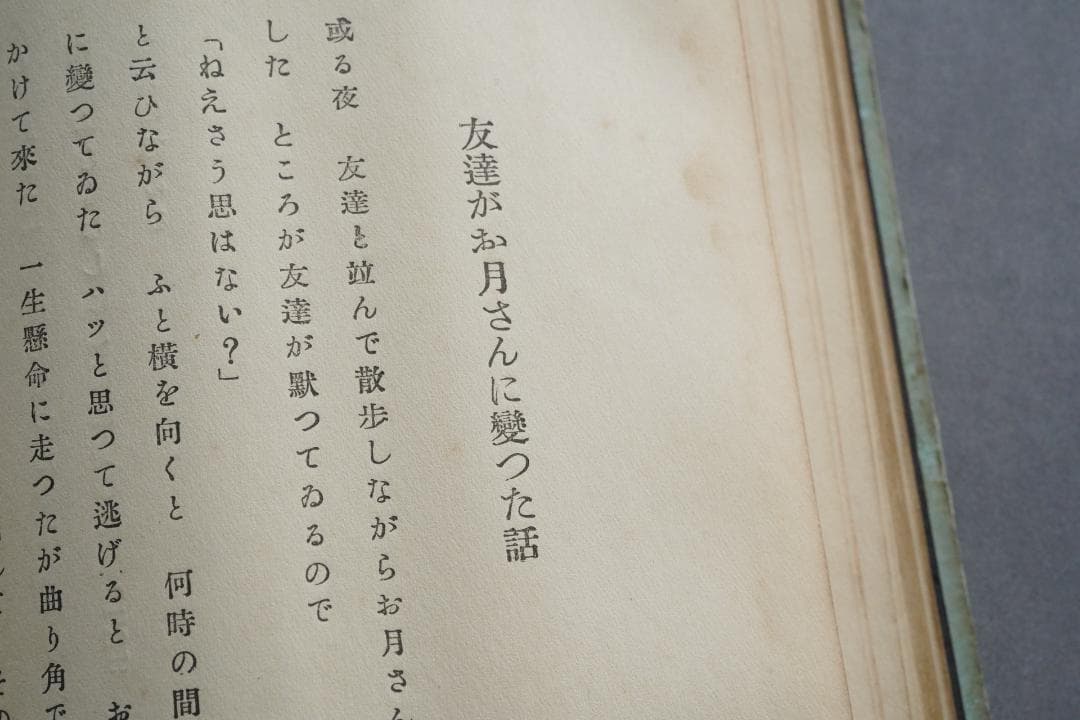 友達がお月さんに變つた話
或る夜　友達と竝んで散歩しながらお月さん
した　ところが友達が默つてゐるので
「ねえさう思はない？」
と云ひながら　ふと横を向くと　何時の間
に變つてゐた　ハッと思つて逃げると　お
かけて來た　一生懸命に走つたが曲り角で